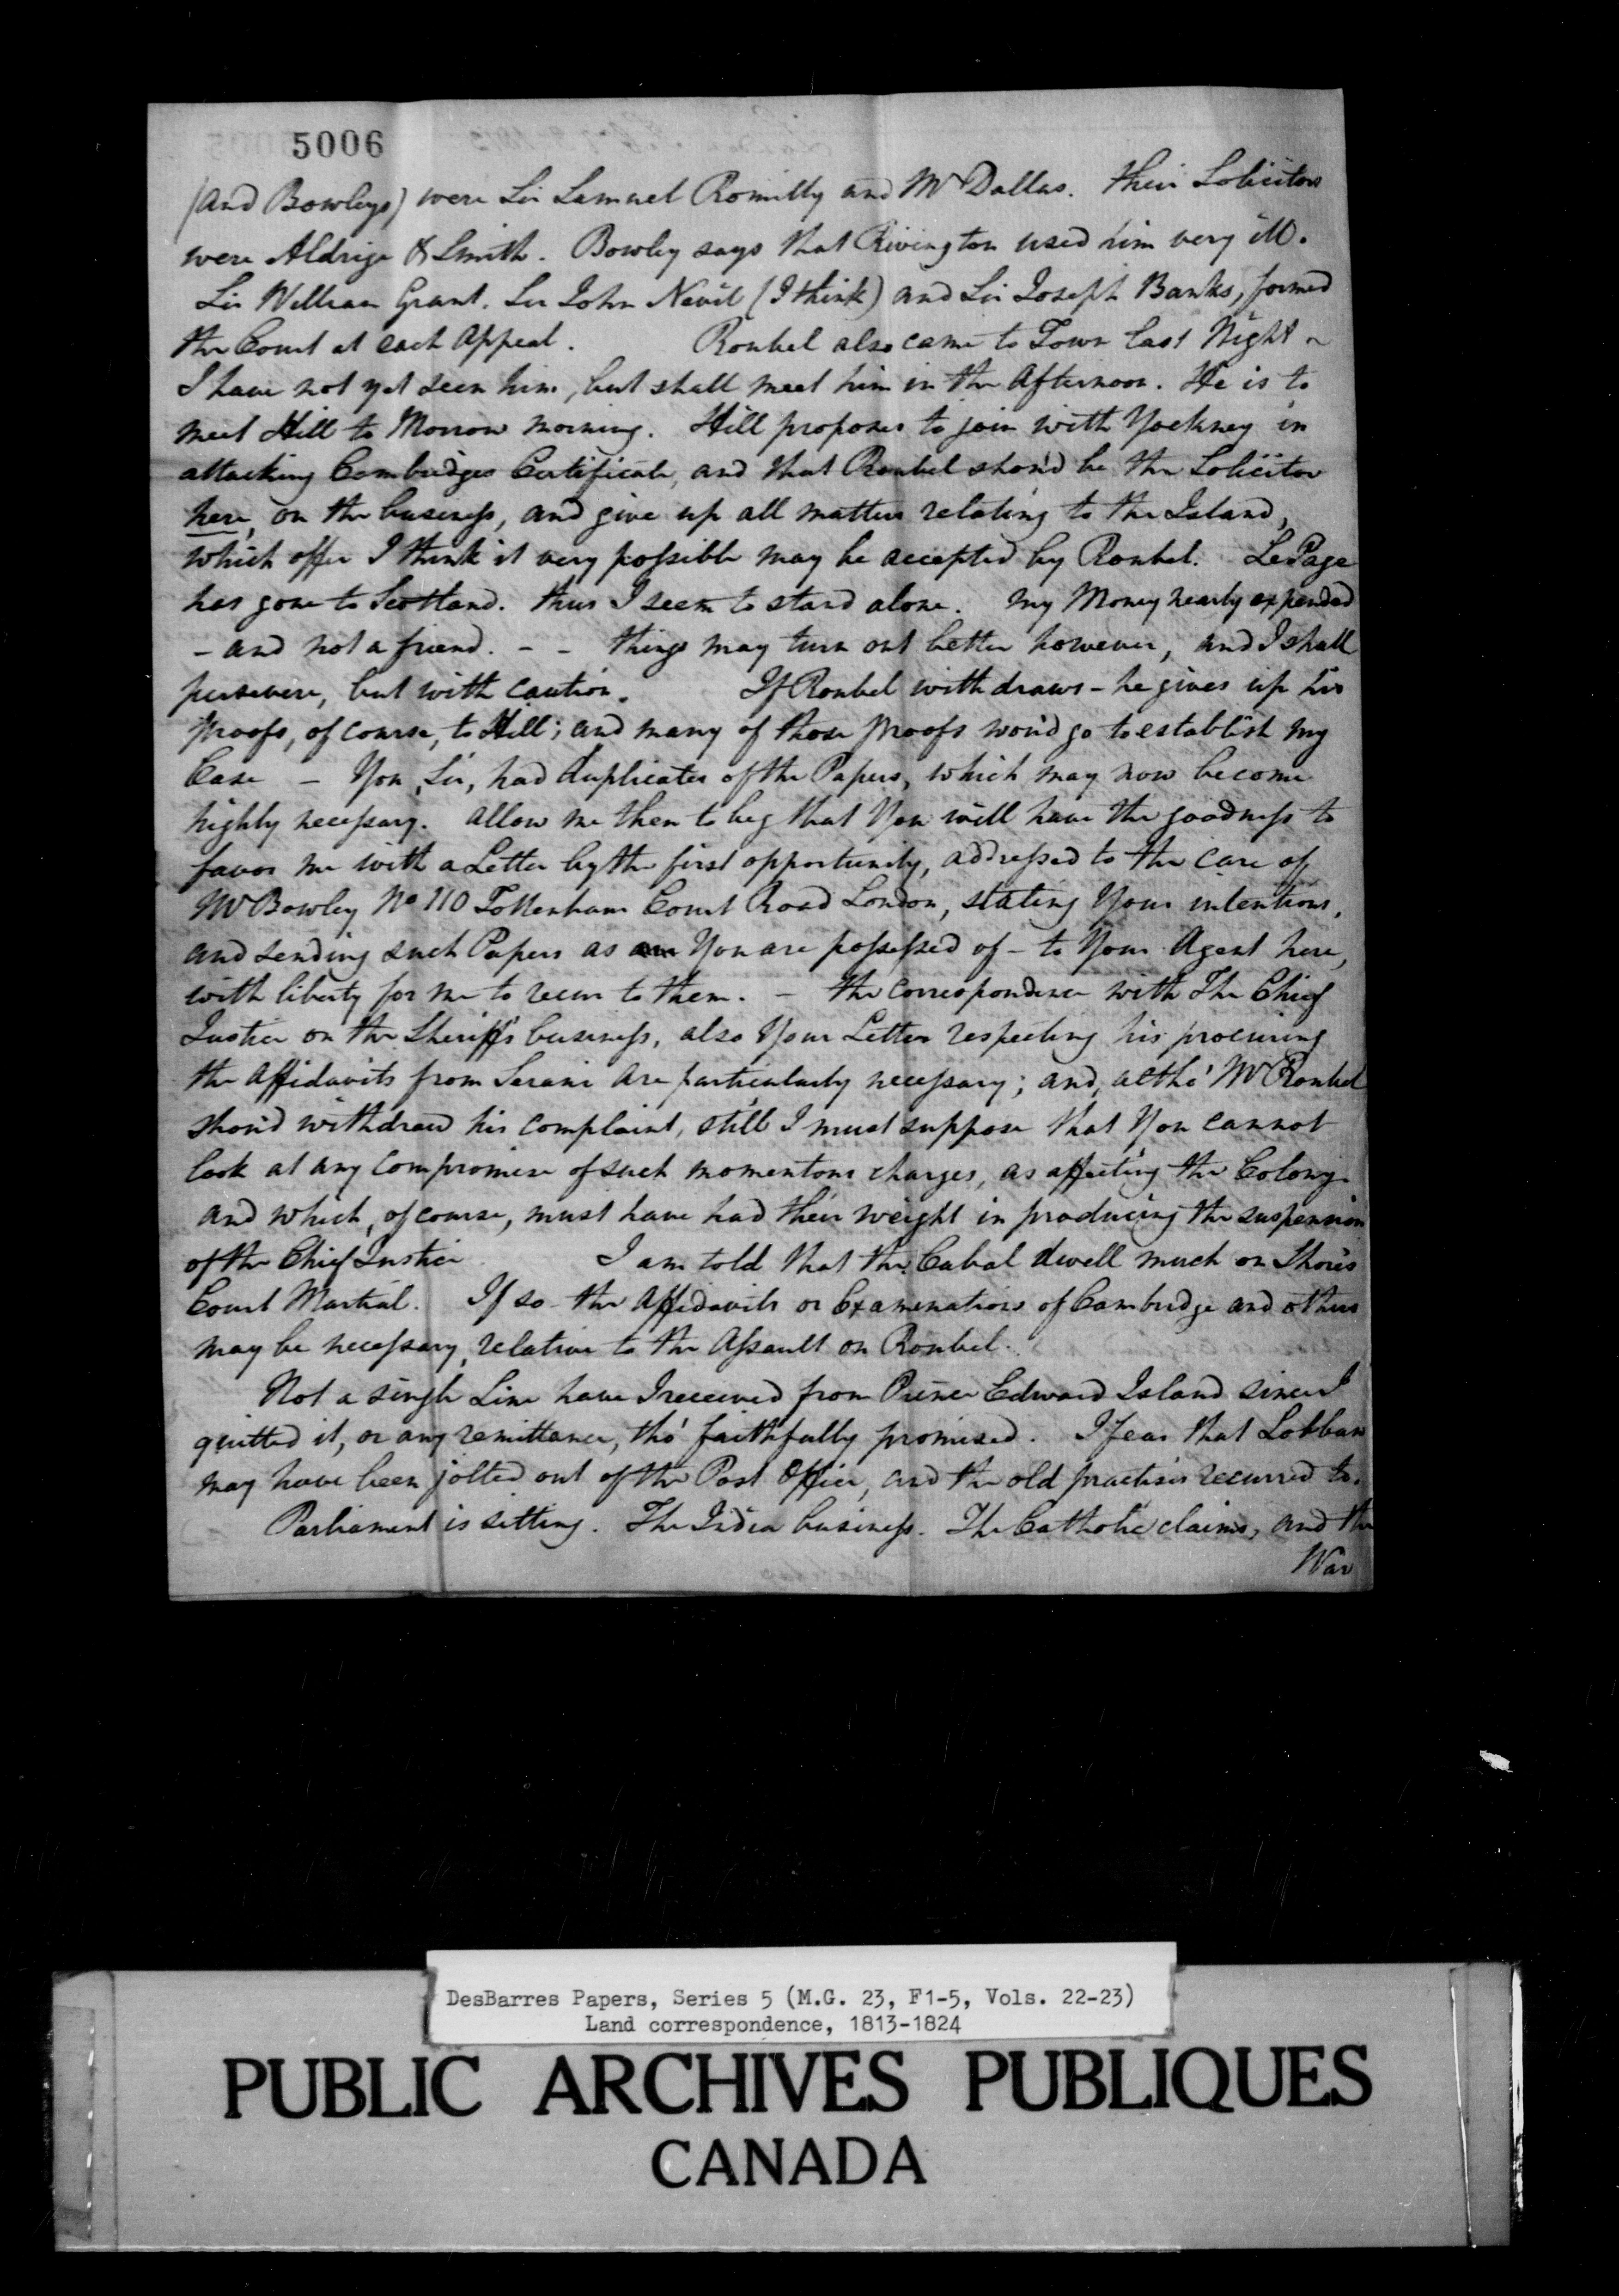 5006
(and Bowleys) were Sir Samuel Romilly and Mr Dallas. Their Solicitors
were Aldrige & Smith. Bowley says that Rivington used him very ill.
Sir William Grant. Sir John Nevil (I think) and Sir Joseph Banks, formed
the Court at each Appeal. Roubel also came to Town last Night ~
I have not yet seen him, but shall meet him in the Afternoon. He is to
meet Hill to Morrow morning. Hill proposes to join with Yockney in
attacking Cambridges Certificate, and that Roubel shou'd be the Solicitor
here, on the business, and give up all matters relating to the Island,
which offer I think it very possible may be accepted by Roubel. LePage
has gone to Scotland. thus I seem to stand alone. My Money nearly expended
- and not a friend. - - things may turn out better however, and I shall
persevere, but with caution. If Roubel withdraws - he gives up his
proofs, of course, to Hill; and many of those proofs wou'd go to establish my
Case - You, Sir, had duplicates of the Papers, which may now become
highly necessary. Allow me then to beg that You will have the goodness to
favor me with a Letter by the first opportunity, addressed to the care of
Mr Bowley No 110 Tottenham Court Road London, stating Your intentions,
and sending such Papers as You are possessed of - to Your Agent here,
with liberty for me to recur to them. - the correspondence with The Chief
Justice on the Sheriff's business, also Your Letter respecting his procuring
the Affidavits from are particularly necessary; and, altho' Mr Roubel
shou'd withdraw his complaint, still I must suppose that You cannot
look at any compromise of such momentous charges, as affecting the Colony
and which, of course, must have had their weight in producing the suspension
of the Chief Justice I am told that the Cabal dwell much on Shore's
Court Martial. If so - the Affidavits or Examinations of Cambridge and others
may be necessary, relative to the Assault on Roubel.
Not a single Line have I received from Prince Edward Island since I
quitted it, or any remittance, tho' faithfully promised. I fear that Lobban
may have been jolted out of the Post Office, and the old practises recurred to.
Parliament is sitting. The India business. The Catholic claims, and the
War
DesBarres Papers, Series 5 (M.G. 23, F1-5, Vols. 22-23)
Land correspondence, 1813-1824
PUBLIC ARCHIVES PUBLIQUES
CANADA